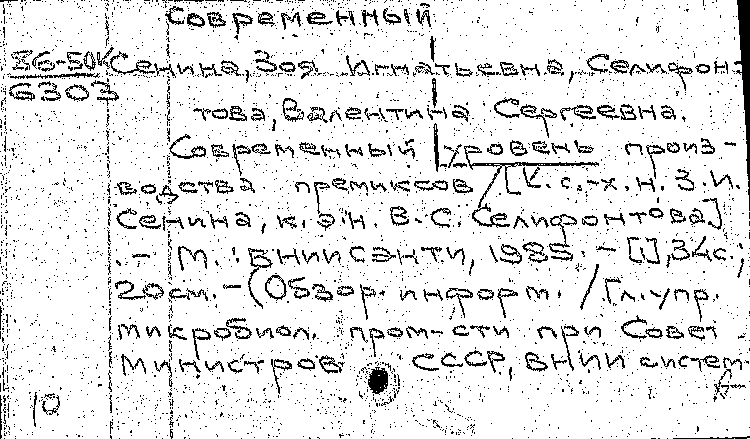 Современный
86-50К Сенина, Зоя Игнатьевна, Селифон-
6303
това, Валентина Сергеевна.
Современный уровень произ-
водства премиксов / [К. с.-х. н. З. И.
Сенина, к. э. н. В. С. Селифонтова].
.- М. : ВНИИСЭНТИ, 1985. - [1], 34 с.;
20 см. - (Обзор. информ. / Гл. упр.
микробиол. пром-сти при Совет
Министров СССР, ВНИИ систем-
10